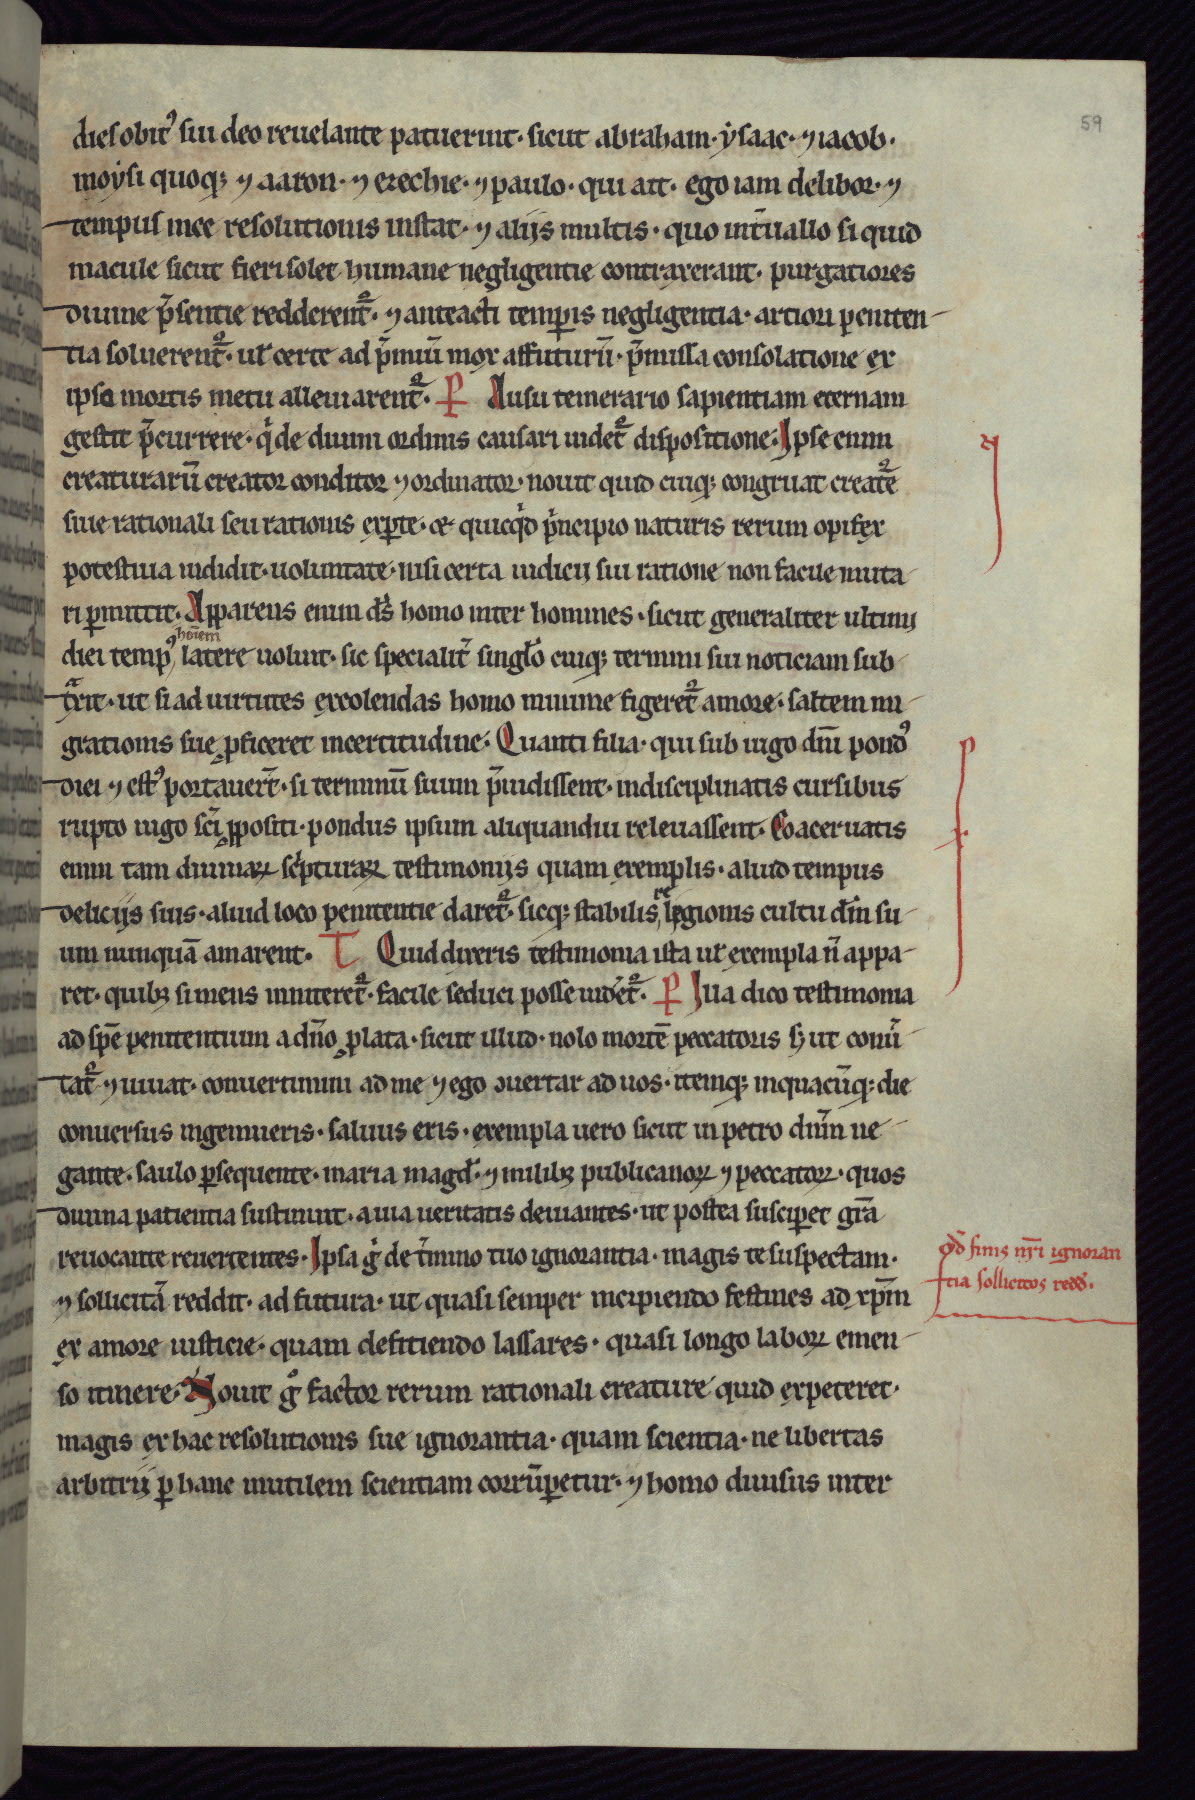 59
dies obitꝰ sui deo reuelante patuerint· sicut abraham· ẏsaac· ⁊ iacob·
moẏsi quoqꝫ ⁊ aaron· ⁊ ezechie· ⁊ paulo· qui ait· ego iam delibor· ⁊
tempus mee resolutionis instat· ⁊ alijs multis· quo int̄uallo si quid
macule sicut fieri solet humane negligentie contraxerant· purgatiores
diuine p̄sentie redderent᷑· ⁊ anteacti temꝑis negligentia· artiori peniten-
tia soluerent᷑· ul̄ certe ad p̄miū mox affuturū· p̄missa consolatione ex
ipso mortis metu alleuiarent᷑· P Ausu temerario sapientiam eternam
gestit p̄currere· qͥ de diuini ordinis causari uidet᷑ dispositione· Ipse enim
creaturarū creator conditor ⁊ ordinator· nouit quid cuiqꝫ congruat creat᷑e
siue rationali seu rationis exꝑte· et quicqͥd pͥncipio naturis rerum opifex
potestiua indidit· uoluntate· nisi certa iudicij sui ratione non facile muta
ri ꝑmittit· Apparens enim d̄s homo inter homines· sicut generaliter ultimi
diei tempꝰ hoīem latere uoluit· sic specialit̄ singl̄o cuiqꝫ termini sui noticiam sub
tͣxit· ut si ad uirtutes excolendas homo minime figeret᷑ amore· saltem mi-
grationis sue ꝓficeret incertitudine· Quanti filia· qui sub iugo dn̄i pondꝰ
diei ⁊ estꝰ portauer̄t· si terminū suum p̄uidissent· indisciplinatis cursibus
rupto iugo sc̄i ꝓpositi· pondus ipsum aliquandiu releuassent· Coaceruatis
enim tam diuinaꝝ scͥpturaꝝ testimonijs quam exemplis· aliud tempus
delicijs suis· aliud loco penitentie daret᷑· sicqꝫ stabilis religionis cultu dn̄m su-
um nunquā amarent· T Quid dixeris testimonia ista ul̄ exempla n̄ appa-
ret· quibꝫ si mens inniteret᷑· facile seduci posse uidet᷑· P Illa dico testimonia
ad spē penitentium a dn̄o ꝓlata· sicut illud· nolo mortē peccatoris sꝫ ut conū
tat᷑ ⁊ uiuat· conuertimini ad me ⁊ ego ꝯuertar ad uos· itemqꝫ inquacūqꝫ die
conuersus ingemueris· saluus eris· exempla uero sicut in petro dn̄m ne-
gante· saulo ꝑsequente· maria magd̄· ⁊ milibꝫ publicanoꝝ ⁊ peccatoꝝ· quos
diuina patientia sustinuit· a uia ueritatis deuiantes· ut postea susciꝑet gr̄a
reuocante reuertentes· Ipsa gͥ de t̄mino tuo ignorantia· magis te suspectam·
⁊ sollicitā reddit· ad futura· ut quasi semper incipiendo festines ad xp̄m
ex amore iusticie· quam defitiendo lassares· quasi longo laboꝝ emen-
so itinere· Nouit gͦ factor rerum rationali creature quid expeteret·
magis ex hac resolutionis sue ignorantia· quam scientia· ne libertas
arbitrij ꝑ hanc inutilem scientiam corrūꝑetur· ⁊ homo diuisus inter
qd̄ finis nr̄i ignoran
tia sollicitos redd̄·